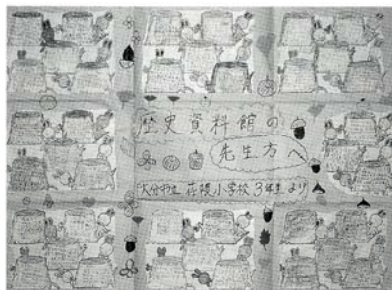 歴史資料館の
先生方へ
大分市立 荏隈小学校 3年生 より